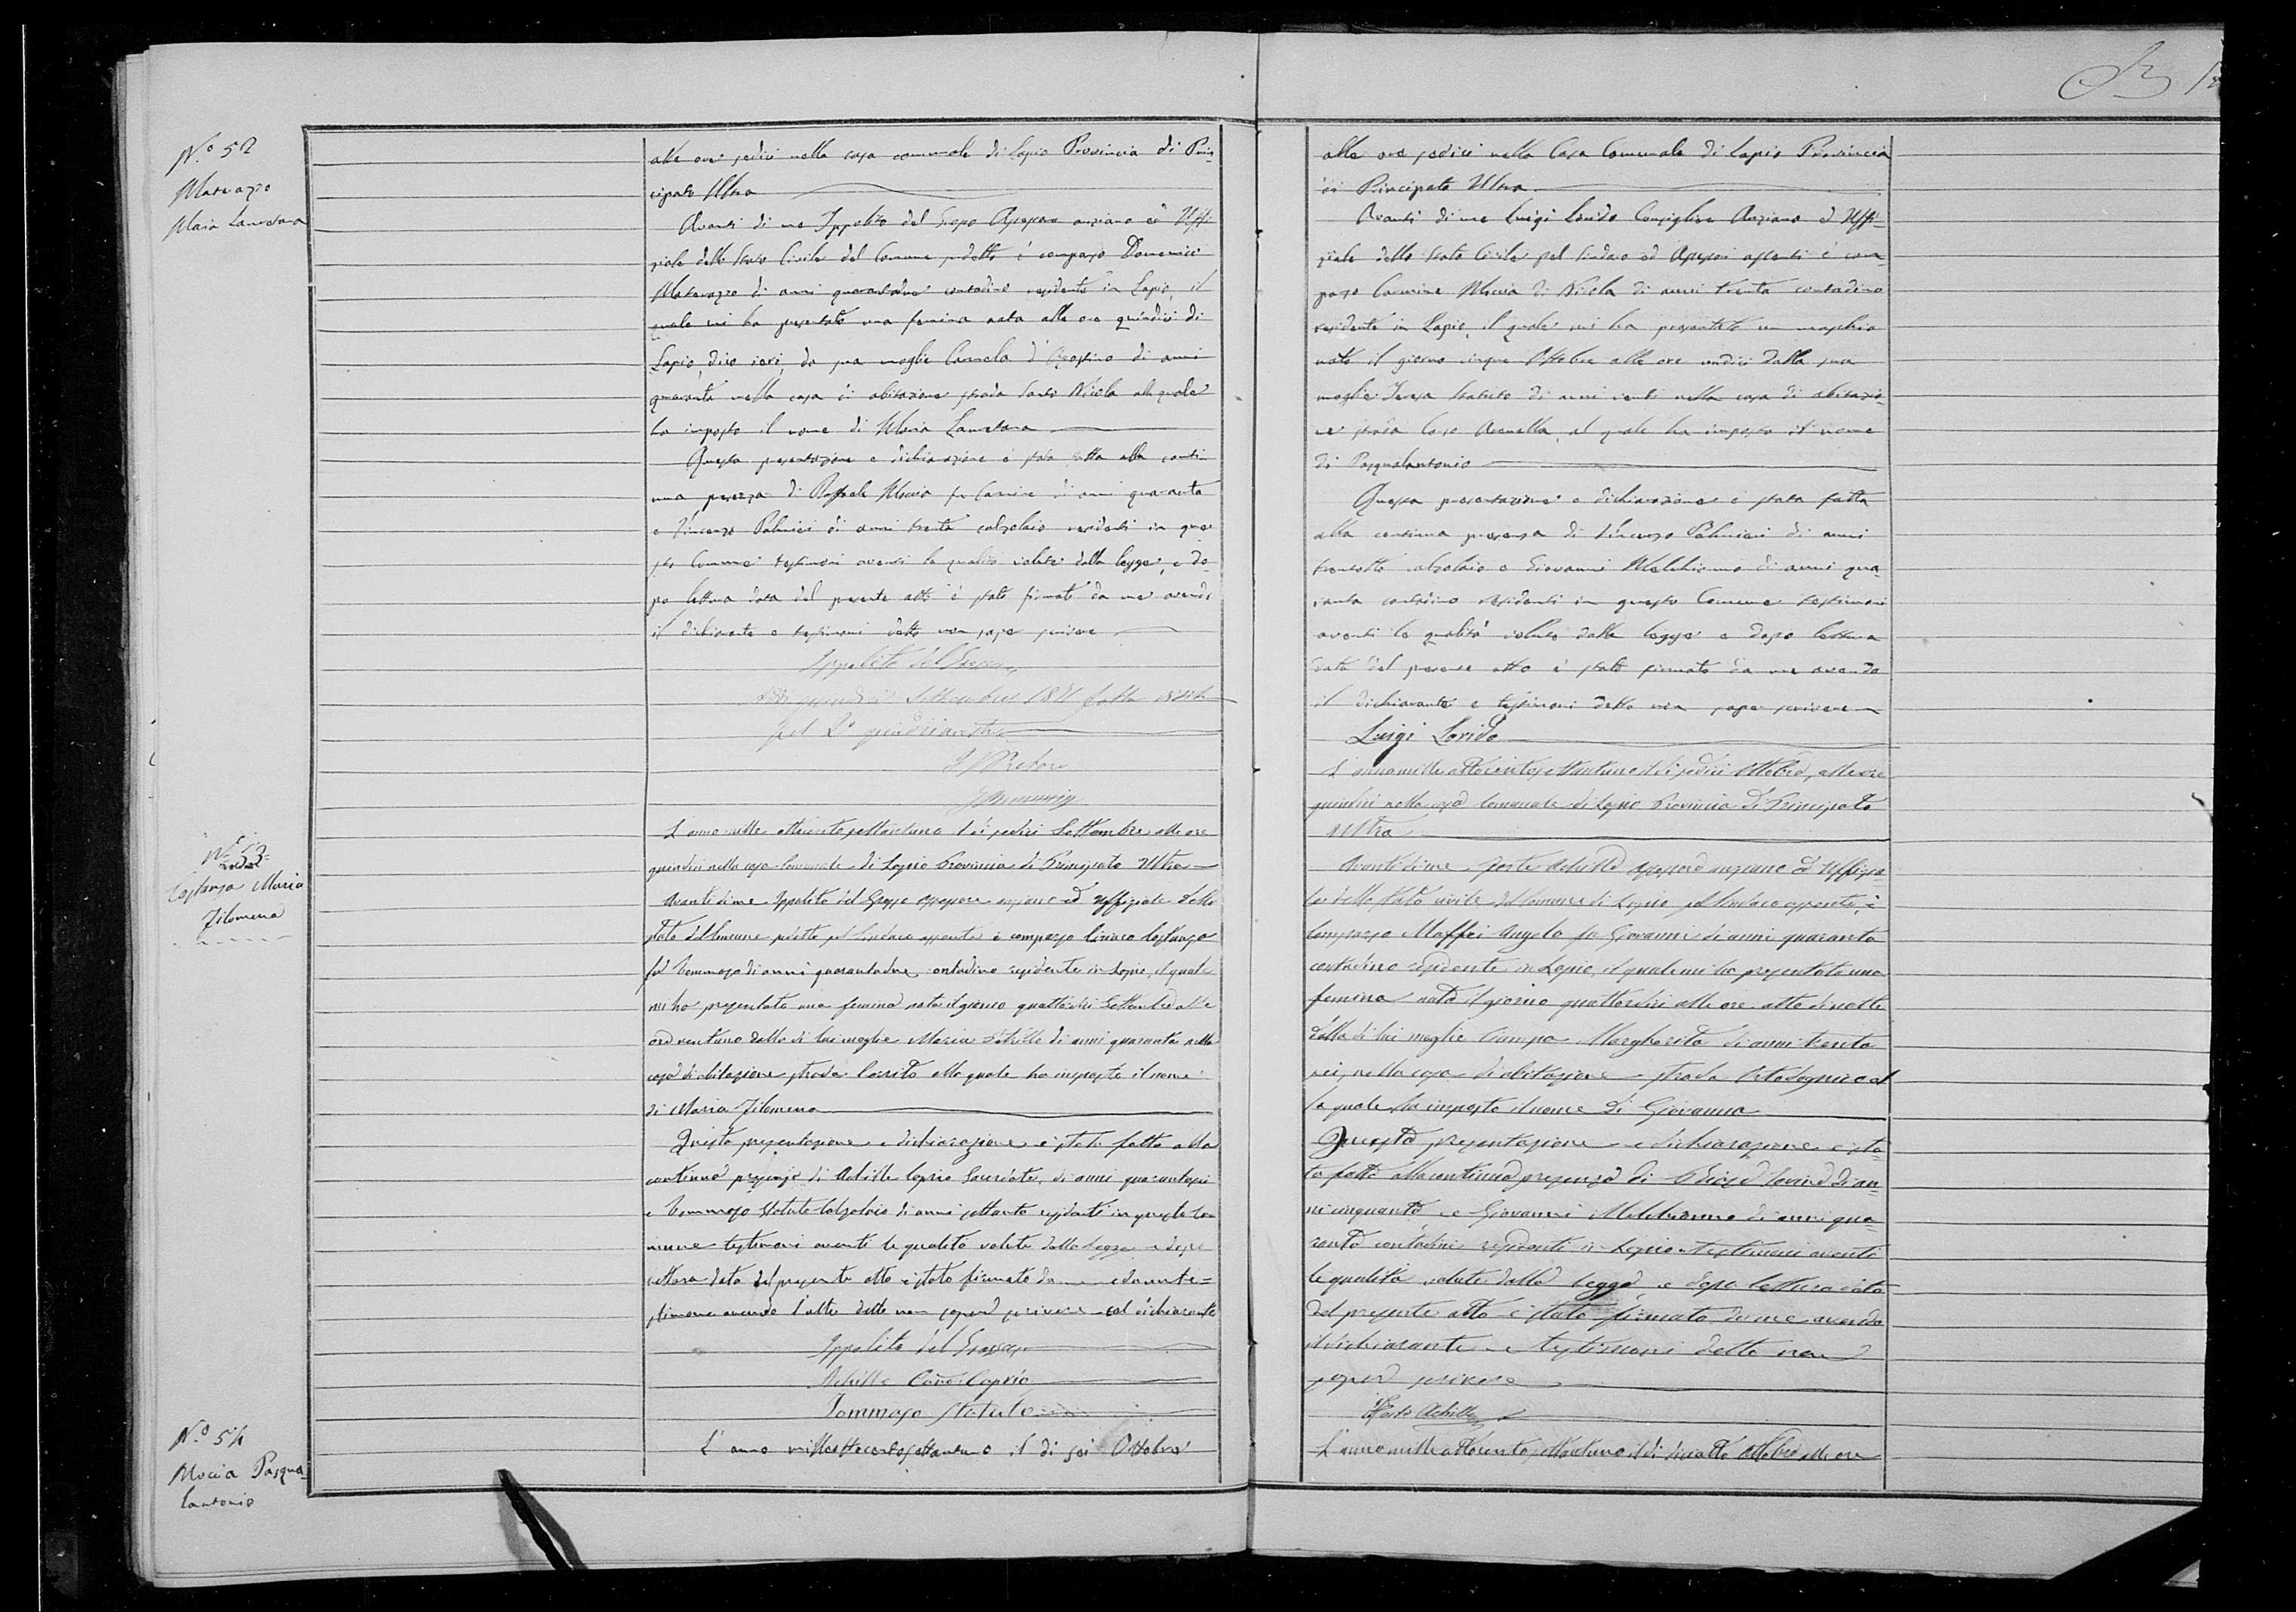 N.o 52
Materazzo
Maria Lauretana
alle ore sedici nella casa comunale di Lapio Provincia di Prin-
cipato Ultra
Avanti di me Ippolito del Grosso Assessore anziano ed Uffi-
ziale dello Stato Civile del Comune sudetto è comparso Domenico
Materazzo di anni quarantadue contadino residente in Lapio, il
quale mi ha presentato una femina nata alle ore quindici di
Lapio, dico ieri, da sua moglie Carmela d'Agostino di anni
quaranta nella casa di abitazione strada Santo Nicola alla quale
ha imposto il nome di Maria Lauretana
Questa presentazione e dichiarazione è stata fatta alla conti-
nua presenza di Raffaele Moccia fu Carmine di anni quaranta
e Vincenzo Palmieri di anni trenta calzolaio residenti in que-
sto Comune testimoni aventi le qualità volute dalla legge, e do-
po lettura data del presente atto è stato firmato da me avendo
il dichiarante e testimoni detto non saper scrivere
Ippolito del Grosso
quindici Settembre 1871 fatta visita
pel 2o quadrimestre
Il Pretore
No 53
Costanza Maria
Filomena
L'anno mille ottocento settantuno il dì sedici Settembre alle ore
quindici nella casa Comunale di Lapio Provincia di Principato Ultra
Avanti di me Ippolito del Grosso Assessore anziano ed Uffiziale dello
Stato del Comune sudetto pel Sindaco assente è comparso Ciriaco Costanza
fu Tommaso di anni quarantadue contadino residente in Lapio, il quale
mi ha presentato una femina nata il giorno quattordici Settembre alle
ore ventuno dalla di lui moglie Maria Petrillo di anni quaranta nella
casa di abitazione strada Carrito alla quale ha imposto il nome
di Maria Filomena
Questa presentazione e dichiarazione è stata fatta alla
continua presenza di Achille Caprio Sacerdote, di anni quarantasei
e Tommaso Statuto Calzolaio di anni settanta residenti in questo Co-
mune testimoni aventi le qualità volute dalla legge e dopo
lettura data del presente atto è stato firmato da me e da un te=
stimone avendo l'altro detto non sapere scrivere col dichiarante
Ippolito del Grosso
Achille Can.co Caprio
Tommaso Statuto
N.o 54
Moccia Pasqua-
lantonio
L'anno milleottocentosettantuno il dì sei Ottobre
alle ore sedici nella Casa Comunale di Lapio Provincia
di Principato Ultra
Avanti di me Luigi Lorido Consigliere Anziano ed Uffi-
ziale dello Stato Civile pel Sindaco ed Assessori assenti è com-
parso Carmine Moccia di Nicola di anni trenta contadino
residente in Lapio, il quale mi ha presentato un maschio
nato il giorno cinque Ottobre alle ore undici dalla sua
moglie Teresa Statuto di anni venti nella casa di abitazio-
ne strada Capo Arenella, al quale ha imposto il nome
di Pasqualantonio
Questa presentazione e dichiarazione è stata fatta
alla continua presenza di Vincenzo Palmieri di anni
trentotto calzolaio e Giovanni Melchionno di anni qua-
ranta contadino residenti in questo Comune testimoni
aventi le qualità volute dalla legge e dopo lettura
data del presente atto è stato firmato da me avendo
il dichiarante e testimoni detto non saper scrivere
Luigi Lorido
L'anno mille ottocento settantuno il dì sedici Ottobre, alle ore
quindici nella casa Comunale di Lapio Provincia di Principato
Ultra
Avanti di me Forte Achille Assessore anziano ed Uffizia
le dello Stato civile del Comune di Lapio pel Sindaco assente, è
Comparso Maffei Angelo fu Giovanni di anni quaranta
contadino residente in Lapio, il quale mi ha presentato una
femina nata il giorno quattordici alle ore otto di notte
dalla di lui moglie Ciampa Margherita di anni trenta
sei, nella casa di abitazione strada al
la quale ha imposto il nome di Giovanna
Questa presentazione e dichiarazione è sta-
ta fatta alla continua presenza di di an-
ni cinquanta e Giovanni Melchionno di anni qua-
ranta contadini residenti in Lapio testimoni aventi
le qualità volute dalla legge e dopo lettura data
del presente atto è stato firmato da me avendo
il dichiarante e testimoni detto non
sapere scrivere
Forte Achille
L'anno mille ottocento settantuno il dì diciotto Ottobre alle ore